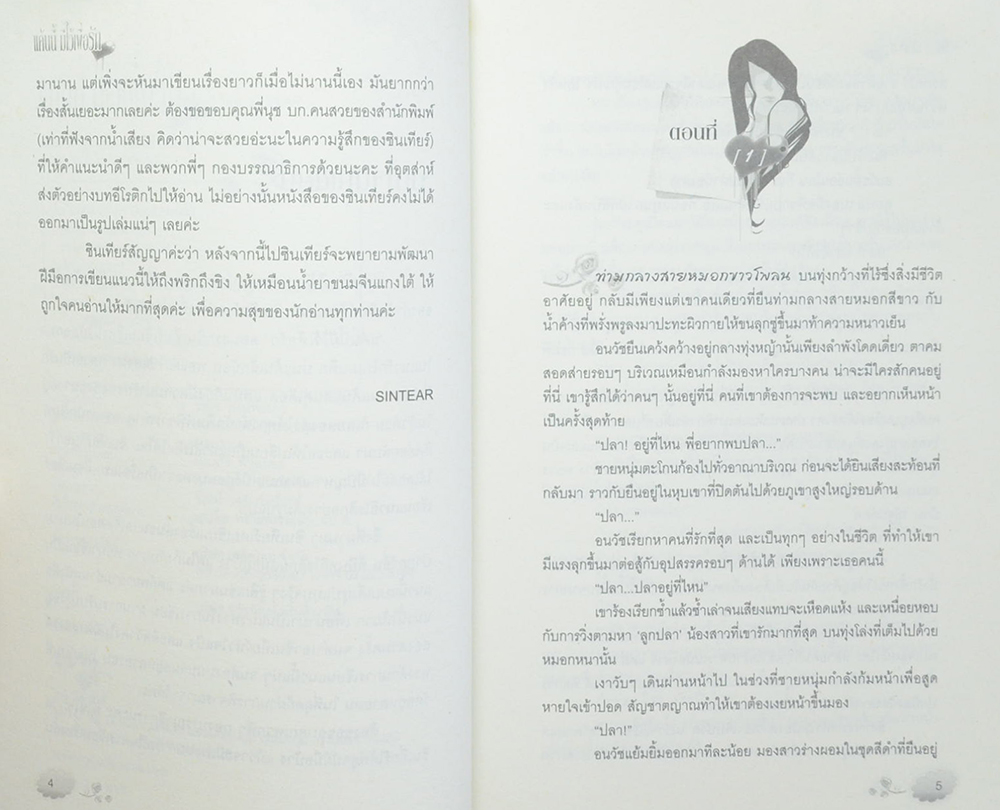 แค้นนี้ มีไว้เพื่อรัก
มานาน แต่เพิ่งจะหันมาเขียนเรื่องยาวก็เมื่อไม่นานนี้เอง มันยากกว่า
เรื่องสั้นเยอะมากเลยค่ะ ต้องขอขอบคุณพี่นุช บก.คนสวยของสำนักพิมพ์
(เท่าที่ฟังจากน้ำเสียง คิดว่าน่าจะสวยอ่ะนะในความรู้สึกของซินเทียร์)
ที่ให้คำแนะนำดีๆ และพวกพี่ๆ กองบรรณาธิการด้วยนะคะ ที่อุตส่าห์
ส่งตัวอย่างบทอีโรติกไปให้อ่าน ไม่อย่างนั้นหนังสือของซินเทียร์คงไม่ได้
ออกมาเป็นรูปเล่มแน่ๆ เลยค่ะ
ซินเทียร์สัญญาค่ะว่า หลังจากนี้ไปซินเทียร์จะพยายามพัฒนา
ฝีมือการเขียนแนวนี้ให้ถึงพริกถึงขิง ให้เหมือนน้ำยาขนมจีนแกงใต้ ให้
ถูกใจคนอ่านให้มากที่สุดค่ะ เพื่อความสุขของนักอ่านทุกท่านค่ะ
SINTEAR
4
ตอนที่
[1]
ท่ามกลางสายหมอกขาวโพลน บนทุ่งกว้างที่ไร้ซึ่งสิ่งมีชีวิต
อาศัยอยู่ กลับมีเพียงแต่เขาคนเดียวที่ยืนท่ามกลางสายหมอกสีขาว กับ
น้ำค้างที่พรั่งพรูลงมาปะทะผิวกายให้ขนลุกซู่ขึ้นมาท้าความหนาวเย็น
อนวัชยืนเคว้งคว้างอยู่กลางทุ่งหญ้านั้นเพียงลำพังโดดเดี่ยว ตาคม
สอดส่ายรอบๆ บริเวณเหมือนกำลังมองหาใครบางคน น่าจะมีใครสักคนอยู่
ที่นี่ เขารู้สึกได้ว่าคนๆ นั้นอยู่ที่นี่ คนที่เขาต้องการจะพบ และอยากเห็นหน้า
เป็นครั้งสุดท้าย
“ปลา! อยู่ที่ไหน พี่อยากพบปลา...”
ชายหนุ่มตะโกนก้องไปทั่วอาณาบริเวณ ก่อนจะได้ยินเสียงสะท้อนที่
กลับมา ราวกับยืนอยู่ในหุบเขาที่ปิดตันไปด้วยภูเขาสูงใหญ่รอบด้าน
“ปลา...”
อนวัชเรียกหาคนที่รักที่สุด และเป็นทุกๆ อย่างในชีวิต ที่ทำให้เขา
มีแรงลุกขึ้นมาต่อสู้กับอุปสรรครอบๆ ด้านได้ เพียงเพราะเธอคนนี้
“ปลา...ปลาอยู่ที่ไหน”
เขาร้องเรียกซ้ำแล้วซ้ำเล่าจนเสียงแทบจะเหือดแห้ง และเหนื่อยหอบ
กับการวิ่งตามหา ‘ลูกปลา’ น้องสาวที่เขารักมากที่สุด บนทุ่งโล่งที่เต็มไปด้วย
หมอกหนานั้น
เงาวับๆ เดินผ่านหน้าไป ในช่วงที่ชายหนุ่มกำลังก้มหน้าเพื่อสูด
หายใจเข้าปอด สัญชาตญาณทำให้เขาต้องเงยหน้าขึ้นมอง
“ปลา!”
อนวัชแย้มยิ้มออกมาทีละน้อย มองสาวร่างผอมในชุดสีดำที่ยืนอยู่
5